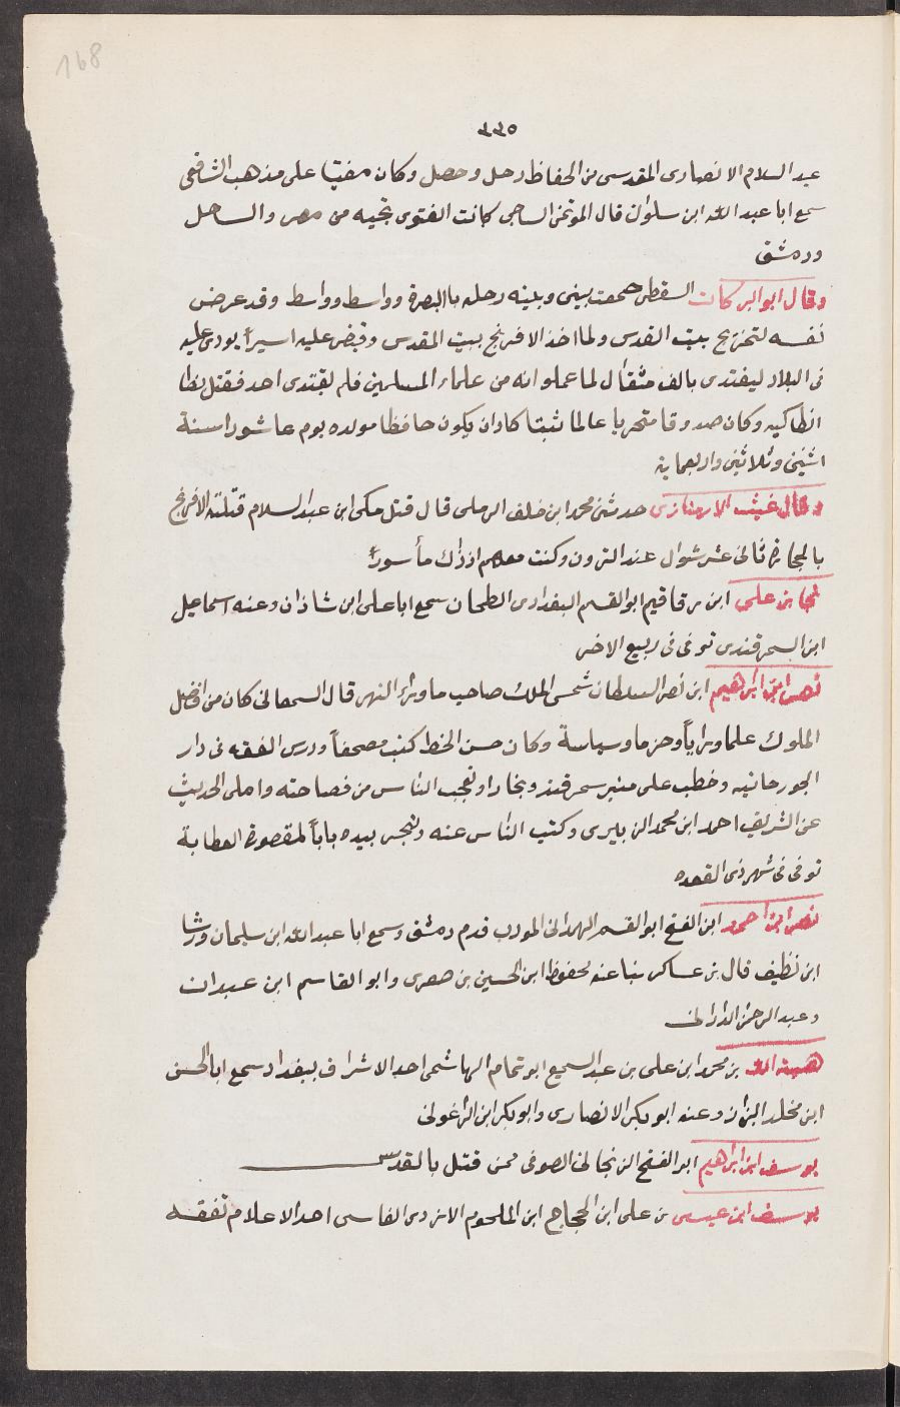 168
٣٣٥
عبد السلام الانصارى المقدسى من الحفاظ رحل وحصل وكان مفتيا على مذهب الشافعى
سمع ابا عبد الله ابن سلوان قال الموتمن الساجى كانت الفتوى تجيه من مصر والساحل
ودمشق
وقال ابو البركات السقطى جمعت بينى وبينه رحله باالبصرة وواسط وواسط وقد عرض
نفسه لتخريج بيت القدس ولما اخذ الافرنج بيت المقدس وقبض عليه اسيراً نودى عليه
فى البلاد ليفتدى بالف مثقال لما عملو انه من علماء المسلمين فلم يفتدى احد فقتل بظا
انطاكيه وكان صدوقا متحريا عالما ثبتا كادان يكون حافظا مولده يوم عاشورا سنة
اثنين وثلاثين واربعماية
وقال غيث الارمنازى حدثنى محمد ابن خلف الرملى قال قتل مكى ابن عبد السلام قتلته الافرنج
بالحجارة ثانى عشر شوال عند البترون وكنت معهم اذذاك مأسوراً
نجا بن على ابن مرقا قيم ابو القسم البغدادى الطحان سمع ابا على ابن شاذان وعنه اسماعيل
ابن السمرقندى توفى فى ربيع الاخر
نصر ابن ابراهيم ابن نصر السلطان شمس الملك صاحب ماوراء النهر قال السمعانى كان من افضل
الملوك علما ورأياً وحزما وسياسة وكان حسن الخط كتب مصحفاً ودرس الفقه فى دار
الجورجانيه وخطب على منبر سمرقند وبخارا وتعجب الناس من فصاحته واملى الحديث
عن الشريف احمد ابن محمد الزبيرى وكتب الناس عنه ونجر بيده باباً لمقصورة الخطابة
توفى فى شهر ذى القعده
نصر ابن احمد ابن الفتح ابو القسم الهمدانى المودب قدم دمشق وسمع ابا عبد الله ابن سليمان ورشا
ابن نظيف قال بن عساكر ثنا عنه محفوظ ابن الحسين بن صصرى وابو القاسم ابن عبدان
وعبد الرحمن الدارانى
هبة الله بن محمد ابن على بن عبد السميع ابو تمام الهاشمى احد الاشراف ببغداد سمع ابا الحسن
ابن مخلد البزار وعنه ابو بكر الانصارى وابو بكر ابن الزاغونى
يوسف ابن ابراهيم ابو الفتح الزنجانى الصوفى ممن قتل بالقدس
يوسف ابن عيسى بن على ابن الحجاج ابن الملجوم الازدى الفاسى احد الاعلام تفقه